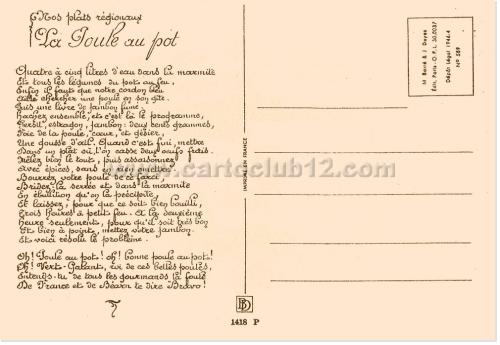 Nos plats régionaux
La Poule au pot
Quatre à cinq litres d'eau dans la marmite
Et tous les légumes du pot au feu,
Enfin il faut que notre cordon bleu
Aille chercher une poule en son gîte.
Puis une livre de jambon fumé.
Hachez ensemble, et c'est là le programme,
Persil, estragon, jambon: deux cents grammes,
Foie de la poule, cœur, et gésier,
Une gousse d'ail. Quand c'est fini, mettre
Dans un plat où l'on casse deux œufs frais.
Mêlez bien le tout, puis assaisonnez
Avec épices, sans en trop mettre
Bourrez votre poule de ce farci
Bridez-la serrée et dans la marmite
En ébullition qu'on la précipite,
Et laissez, pour que ce soit bien bouilli,
Trois heures à petit feu. A la deuxième
Heure seulement, pour qu'il soit très bon
Et bien à point, mettez votre jambon.
Et voici résolu le problème.
Oh! Poule au pot! oh! bonne poule au pot!
Oh! Vert-Galant, roi de ces belles poules,
Entends-tu de tous les gourmands la foule
De France et de Béarn te dire Bravo!
IMPRIMÉ EN FRANCE
M. Barré & J. Dayez
Édit. Paris - O.P.L. 30.0037
Dépôt légal 1946.4
No 589
www.cartoclub12.com
BD
1418 P